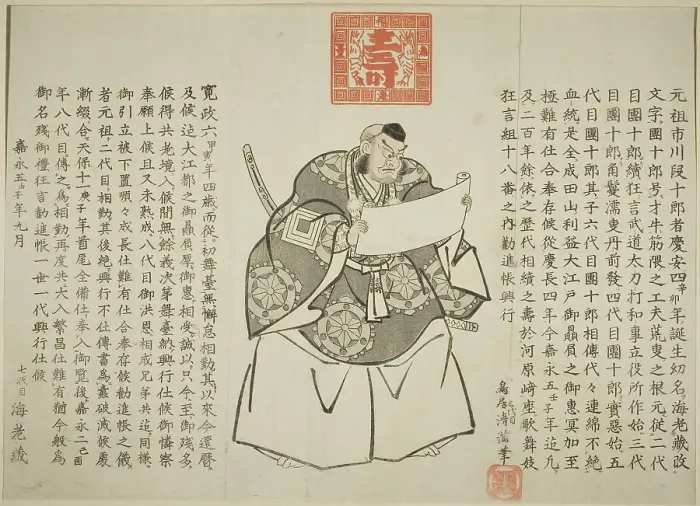 元祖市川段十郎者慶安四辛卯年誕生幼名海老蔵改
文字團十郎号才牛筋隈之工夫荒叓之根元従二代
目團十郎續狂言武道太刀打和事立役所作始三代
目團十郎角鬘濡叓丹前發四代目團十郎實惡始五
代目團十郎其子六代目團十郎相傳代々連綿不絶
血統是全成田山利益大江戸御贔屓之御惠冥加至
極難有仕合奉存候従慶長四年今嘉永五壬子年迄凡
及二百年餘依之歴代相續之壽於河原崎座歌舞妓
狂言組十八番之内勸進帳興行
代目
鳥居清満筆
寛政六甲寅年四歳而従初舞臺無懈怠相勤其以來今還暦
及候迄大江都之御贔屓厚御惠相受誠以只今至御残多
候得共老境入候間無餘義次第舞臺納興行仕候御憐察
奉願上候且又未熟成八代目御洪恩相成兄弟共迄同様
御引立被下置順々成長仕難有仕合奉存候勸進帳之儀
者元祖二代目相勤其後絶興行不仕傳書為蠧破減候處
漸綴合天保十一庚子年首尾全備仕奉入御覧後嘉永二己酉
年八代目傳之為相勤再度共大入繁昌仕難有猶今般為
御名残御禮狂言勸進帳一世一代興行仕候
嘉永五壬子年九月
七代目 海老蔵